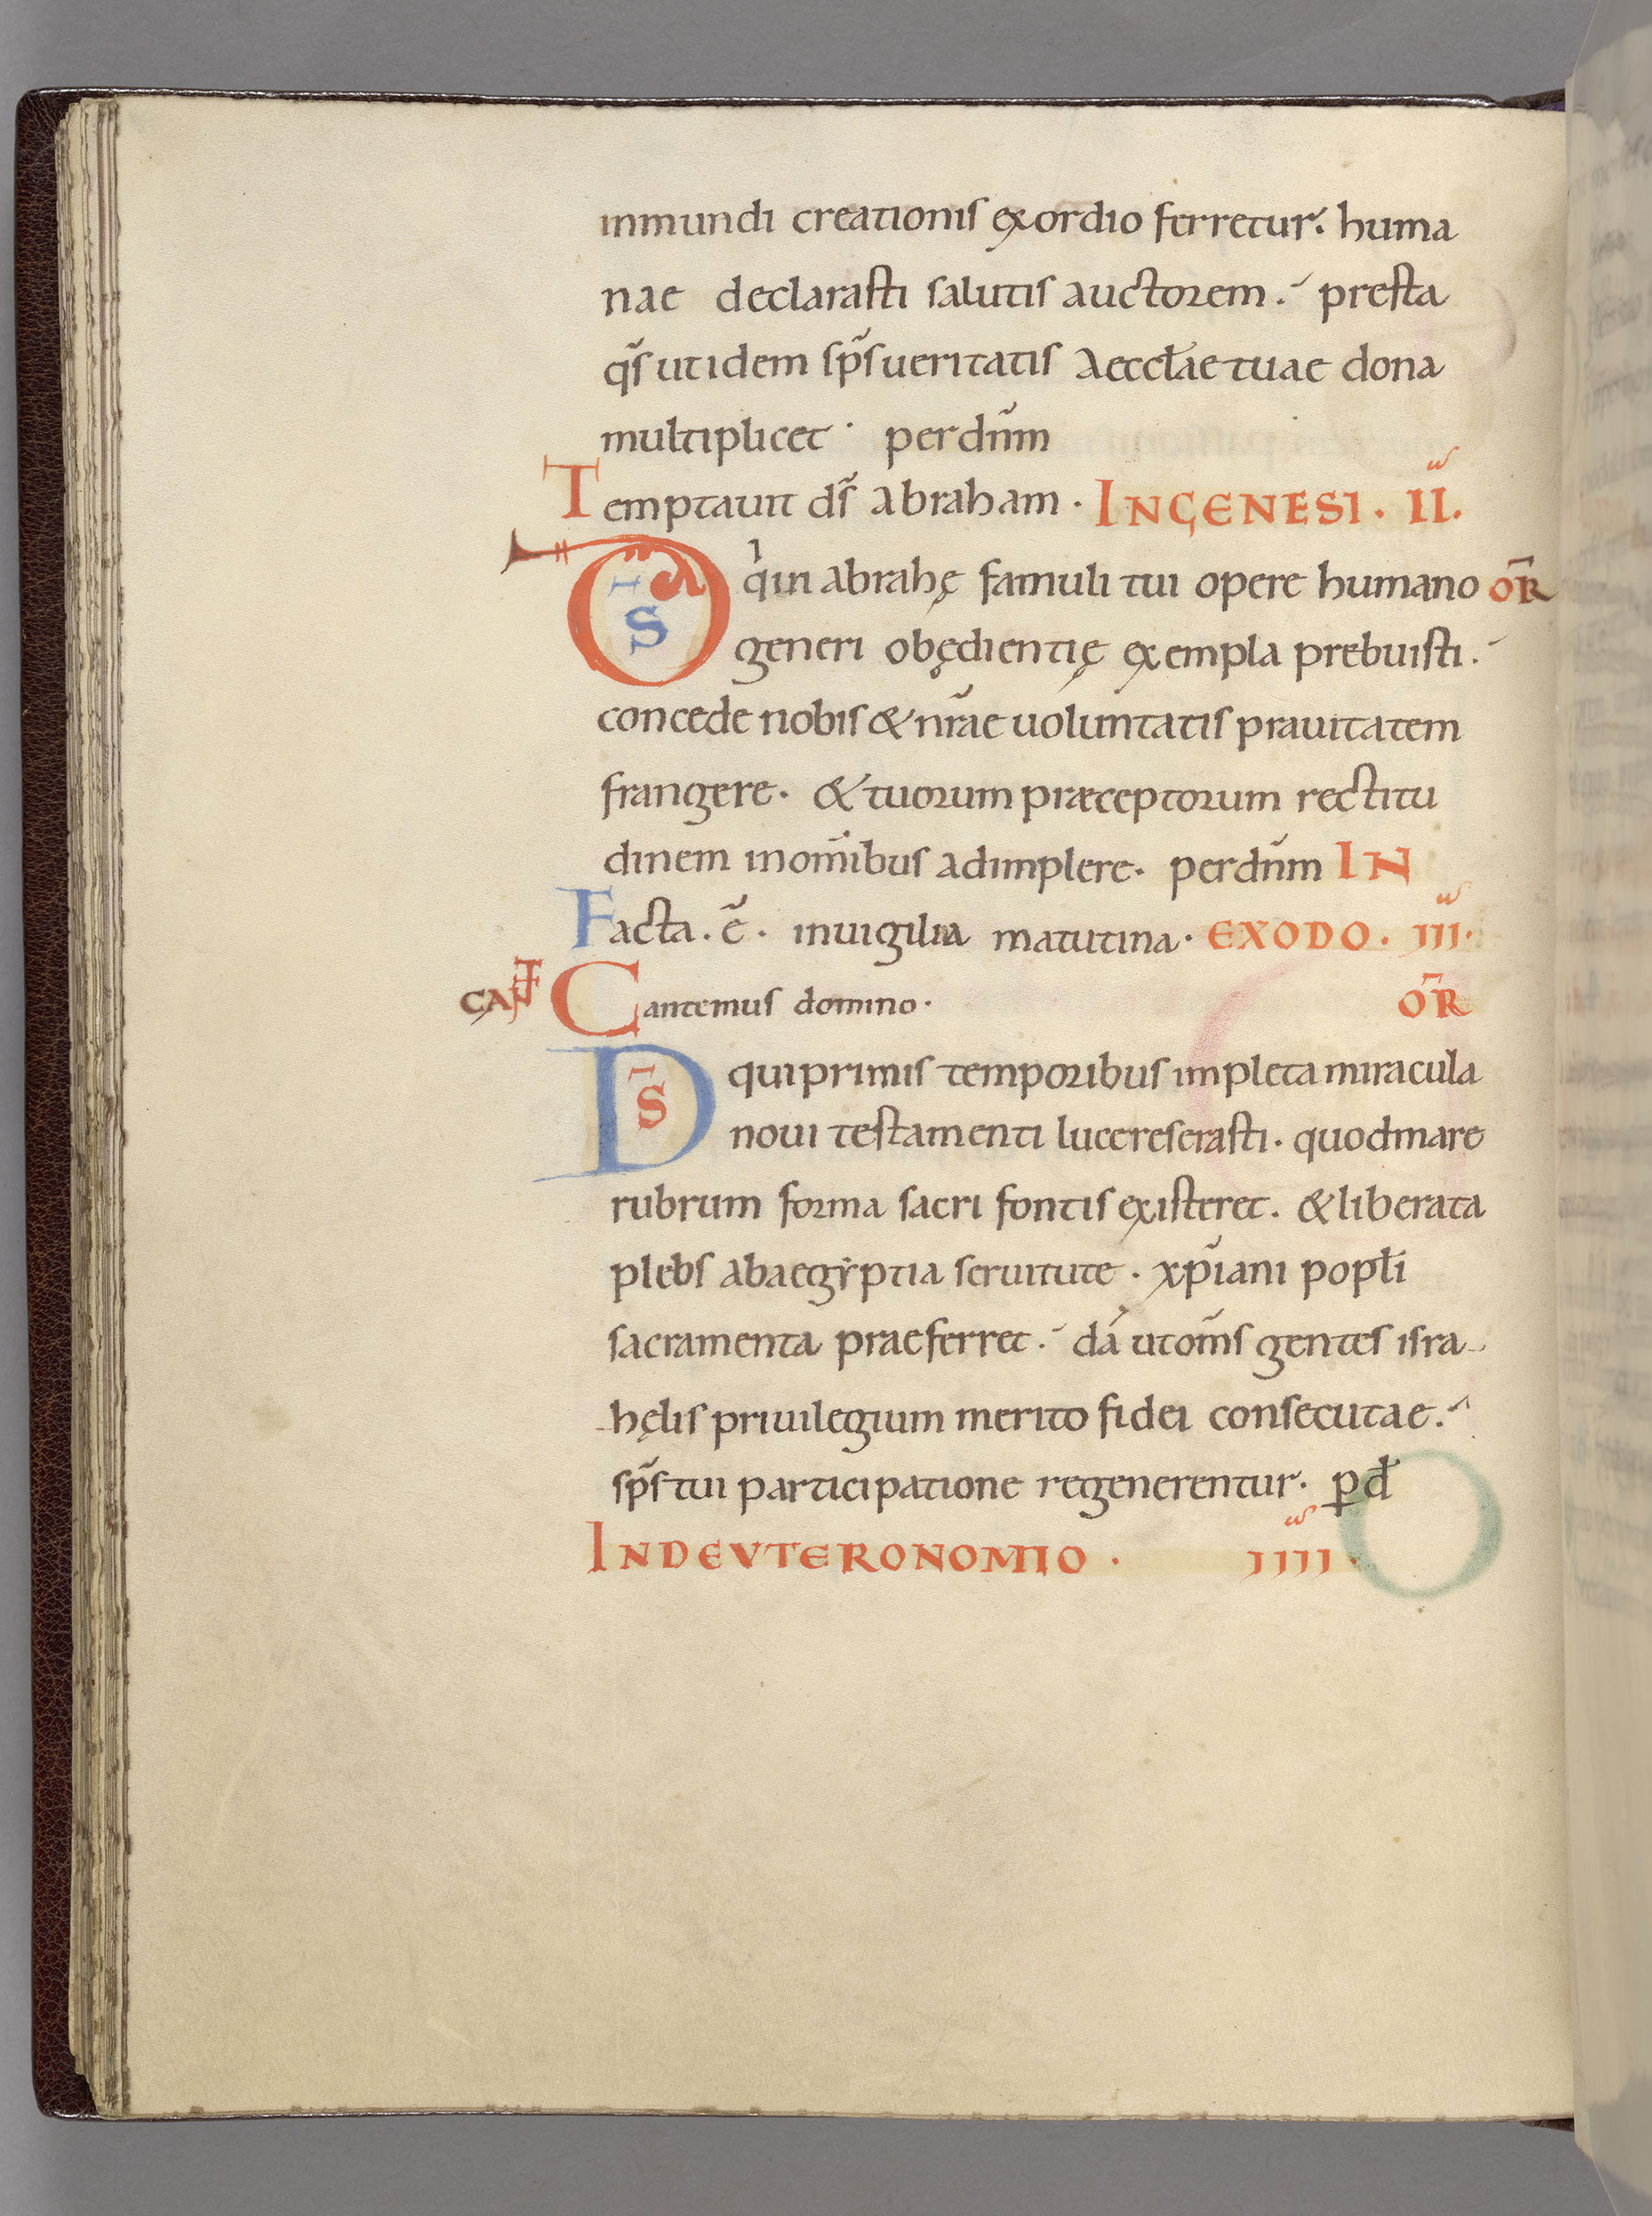 inmundi creationis exordio ferretur. huma
nae declarasti salutis auctorem. presta
qs̄ ut idem sp̄s ueritatis aeccłae tuae dona
multiplicet. perdn̄m
Temptauit ds̄ abraham. INGENESI. II.
D̄S qⁱ in abrahę famuli tui opere humano OR̄
generi obędientię exempla prebuisti.
concede nobis & nr̄ae uoluntatis prauitatem
frangere. & tuorum præceptorum rectitu
dinem in om̄ibus adimplere. perdn̄m IN
Facta. ē. inuigilia matutina. EXODO. III.
CANT̄ Cantemus domino. OR̄
D̄S qui primis temporibus impleta miracula
noui testamenti luce reserasti. quod mare
rubrum forma sacri fontis existeret. & liberata
plebs ab aegẏptia seruitute. xp̄iani popłi
sacramenta praeferret. da ut om̄s gentes isra-
-hęlis priuilegium merito fidei consecutae.
sp̄s tui participatione regenerentur. ꝑ đ
INDEVTERONOMIO. IIII.